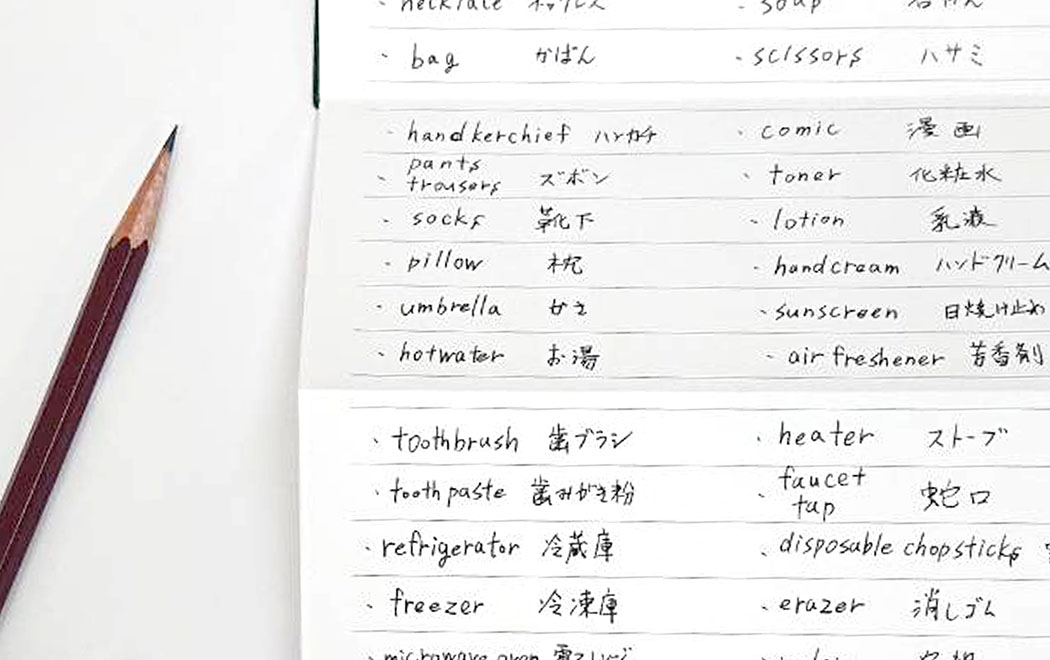 · necklace ネックレス · soap 石けん
· bag かばん · scissors ハサミ
· handkerchief ハンカチ · comic 漫画
· pants
trousers ズボン · toner 化粧水
· socks 靴下 · lotion 乳液
· pillow 枕 · handcream ハンドクリーム
· umbrella かさ · sunscreen 日焼け止め
· hotwater お湯 · air freshener 芳香剤
· toothbrush 歯ブラシ · heater ストーブ
· tooth paste 歯みがき粉 · faucet
tap 蛇口
· refrigerator 冷蔵庫 · disposable chopsticks
· freezer 冷凍庫 · erazer 消しゴム
· microwave oven 電子レンジ